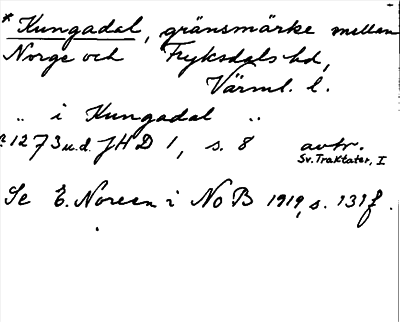 * Kungadal, gränsmärke mellan
Norge och Fryksdals hd,
Värml. l.
„ i Kungadal „
1273 u.d. JHD 1, s. 8 avtr.
Sv. Traktater, I
Se E. Noreen i NoB 1919, s. 131 f.